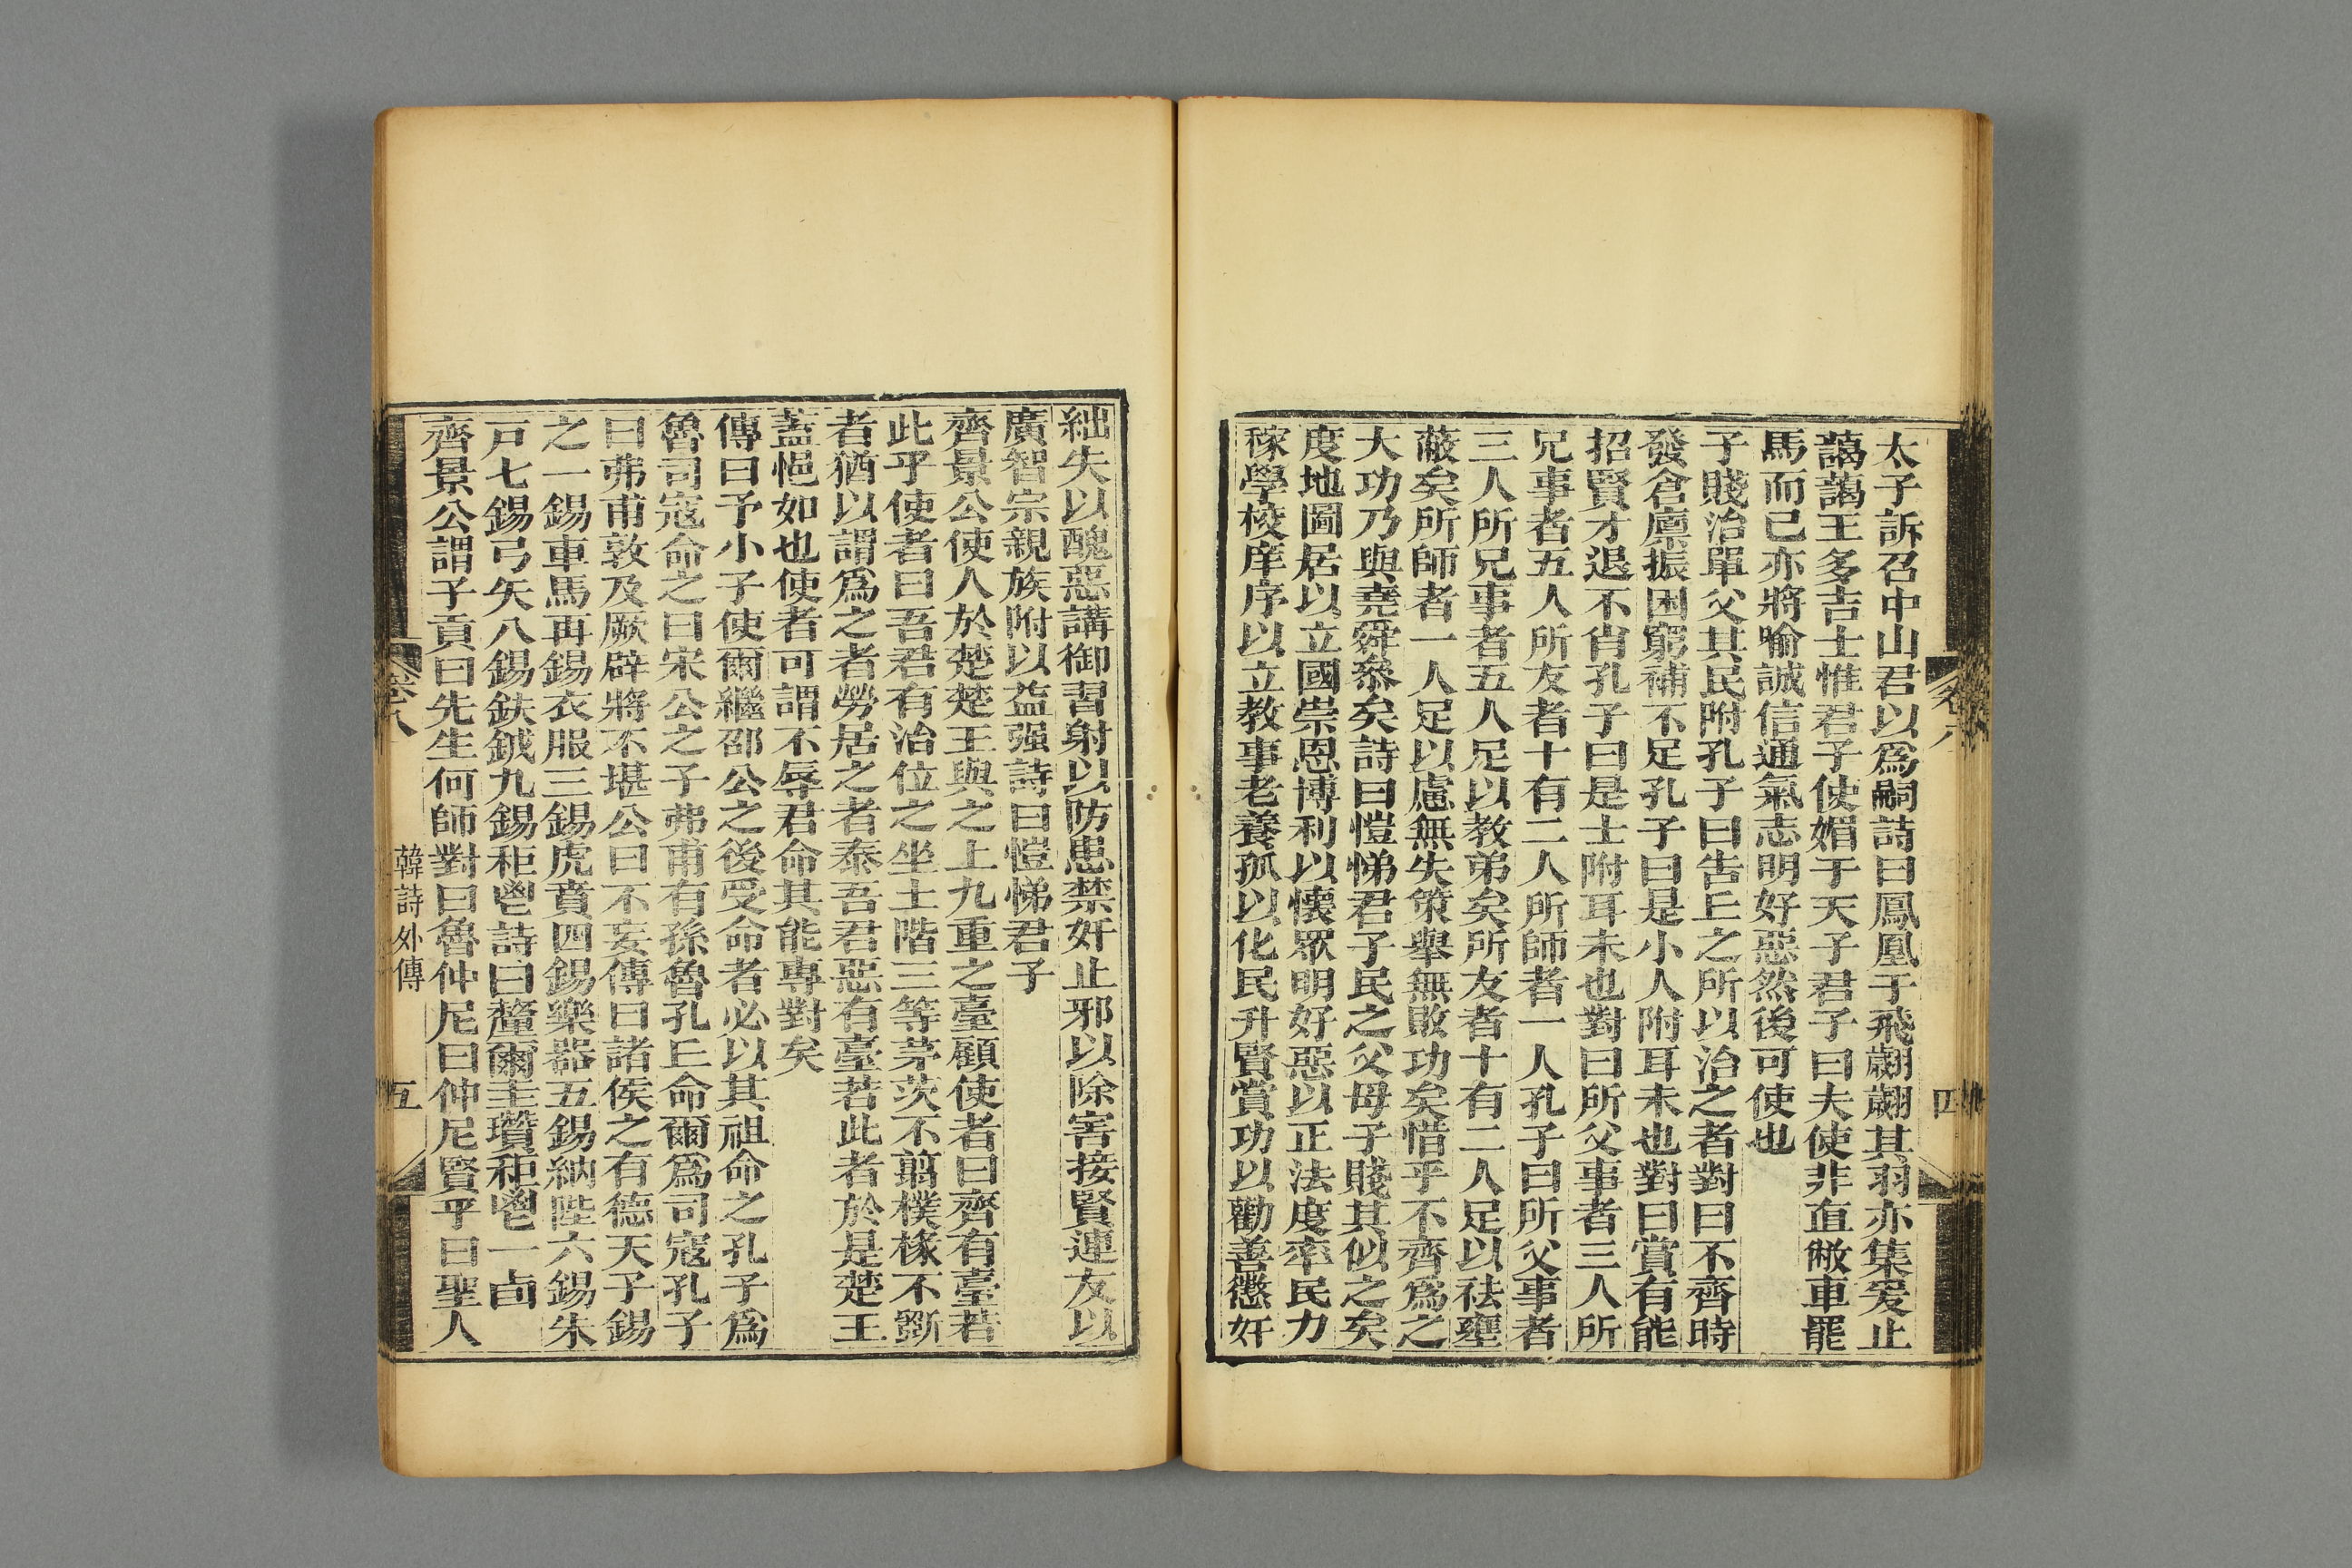 太子訴召中山君以爲嗣詩曰鳳凰于飛翽翽其羽亦集爰止
藹藹王多吉士惟君子使媚于天子君子曰夫使非直敝車罷
馬而已亦將喻誠信通氣志明好惡然後可使也
子賤治單父其民附孔子曰告丘之所以治之者對曰不齊時
發倉廩振困窮補不足孔子曰是小人附耳未也對曰賞有能
招賢才退不肖孔子曰是士附耳未也對曰所父事者三人所
兄事者五人所友者十有二人所師者一人孔子曰所父事者
三人所兄事者五人足以教弟矣所友者十有二人足以祛壅
蔽矣所師者一人足以慮無失策舉無敗功矣惜乎不齊爲之
大功乃與堯舜參矣詩曰愷悌君子民之父母子賤其似之矣
度地圖居以立國崇恩博利以懷眾明好惡以正法度率民力
稼學校庠序以立教事老養孤以化民升賢賞功以勸善懲奸
卷八
四
絀失以醜惡講御習射以防患禁奸止邪以除害接賢連友以
廣智宗親族附以益强詩曰愷悌君子
齊景公使人於楚楚王與之上九重之臺顧使者曰齊有臺若
此乎使者曰吾君有治位之坐土階三等茅茨不翦樸椽不斵
者猶以謂爲之者勞居之者泰吾君惡有臺若此者於是楚王
蓋悒如也使者可謂不辱君命其能專對矣
傳曰予小子使爾繼邵公之後受命者必以其祖命之孔子爲
魯司寇命之曰宋公之子弗甫有孫魯孔丘命爾爲司寇孔子
曰弗甫敦及厥辟將不堪公曰不妄傳曰諸侯之有德天子錫
之一錫車馬再錫衣服三錫虎賁四錫樂器五錫納陛六錫朱
戸七錫弓矢八錫鈇鉞九錫秬鬯詩曰釐爾圭瓚秬鬯一卣
齊景公謂子貢曰先生何師對曰魯仲尼曰仲尼賢乎曰聖人
卷八
韓詩外傳
五